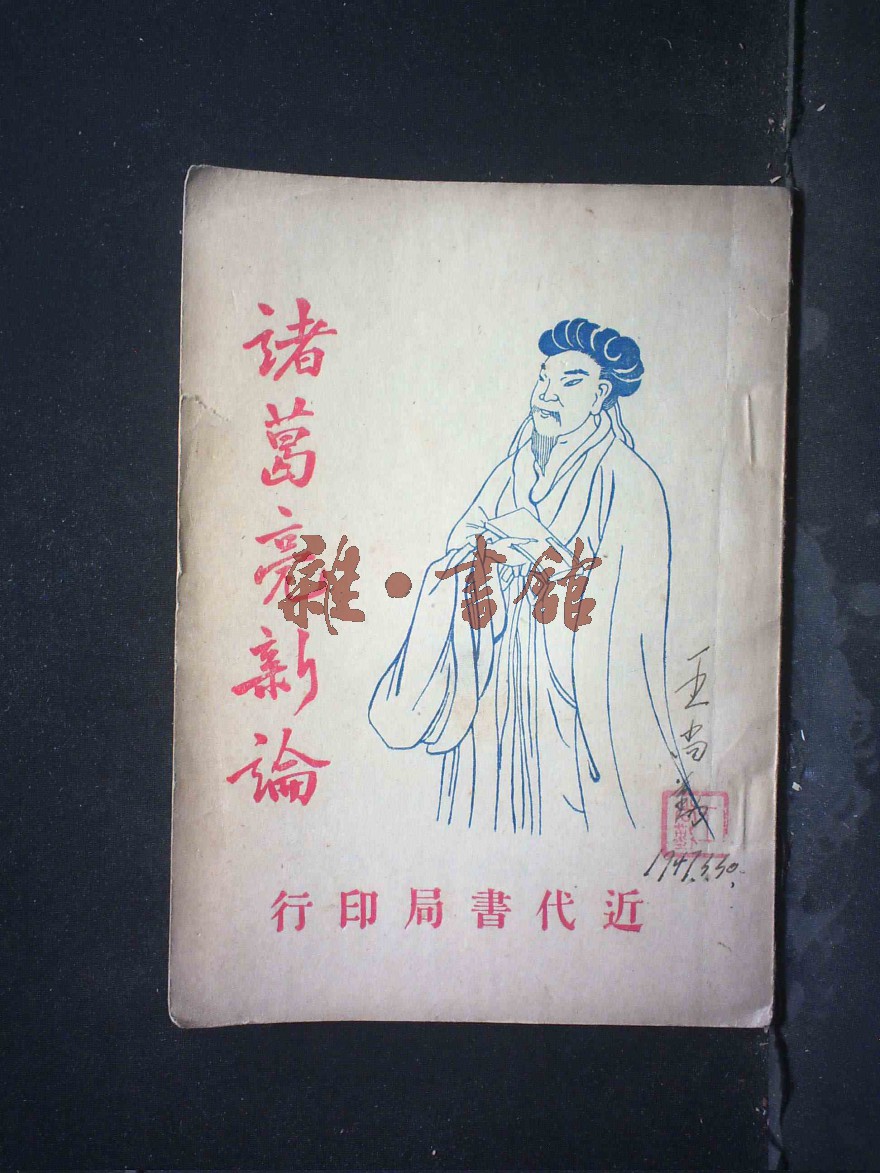 諸葛亮新論
雜·書館
王尚義
1947.3.30.
近代書局印行